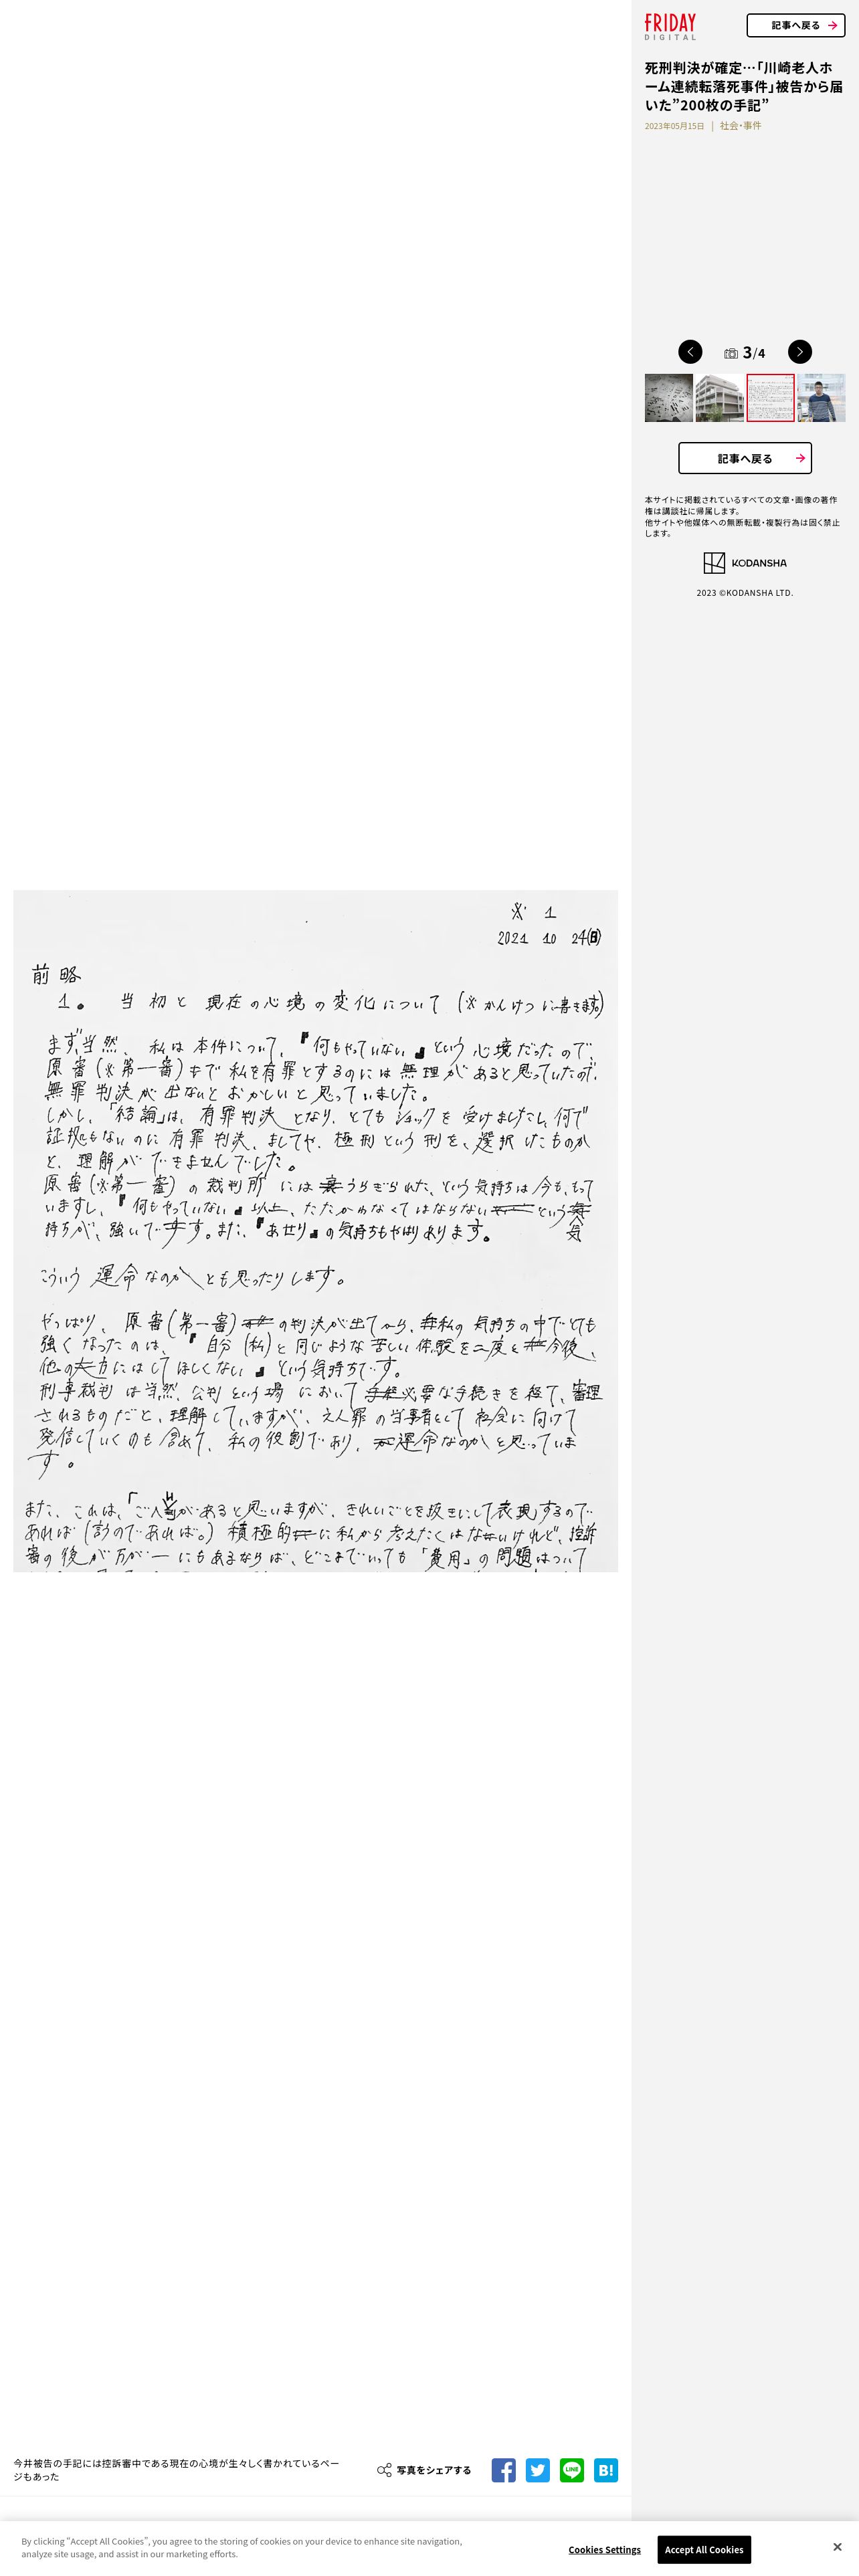 FRIDAY
DIGITAL
記事へ戻る
死刑判決が確定…「川崎老人ホ
ーム連続転落死事件」被告から届
いた”200枚の手記”
2023年05月15日 | 社会・事件
3/4
記事へ戻る
本サイトに掲載されているすべての文章・画像の著作
権は講談社に帰属します。
他サイトや他媒体への無断転載・複製行為は固く禁止
します。
KODANSHA
2023 ©KODANSHA LTD.
※ 1
2021 10 24(日)
前略
1。 当初と現在の心境の変化について (※かんけつに書きます。)
まず、当然、私は本件について、『何もやっていない』という心境だったので、
原審(※第一審)まで私を有罪とするのには無理があると思っていたので、
無罪判決が出ないとおかしいと思っていました。
しかし、「結論」は、有罪判決となり、とてもショックを受けましたし、何で
証拠もないのに有罪判決、ましてや、極刑という刑を、選択けたものか
と、理解ができませんでした。
原審(※第一審)の裁判所にはうらぎられた、という気持ちは今も、もって
いますし、『何もやっていない』以上、たたかわなくてはならないという気
持ちが、強いです。また、『あせり』の気持ちもやはりあります。
こういう運命なのかとも思ったりします。
やっぱり、原審(第一審)の判決が出てから、私の気持ちの中でとても
強くなったのは、『自分(私)と同じような苦しい体験を二度と今後、
他の方にはしてほしくない』という気持ちです。
刑事裁判は当然、公判という場において必要な手続きを経て、審理
されるものだと、理解していますが、えん罪の当事者として社会に向けて
発信していくのも含めて、私の役割であり、運命なのかと思っていま
す。
また、これは、「ご人」があると思いますが、きれいごとを抜きにして表現するので
あれば(訪のであれば。)積極的に私から考えたくはないけれど、控訴
審の後が万が一にもあるならば、どこまでいっても「費用」の問題はついて
今井被告の手記には控訴審中である現在の心境が生々しく書かれているペー
ジもあった
写真をシェアする
LINE
B!
By clicking “Accept All Cookies”, you agree to the storing of cookies on your device to enhance site navigation,
analyze site usage, and assist in our marketing efforts.
Cookies Settings
Accept All Cookies